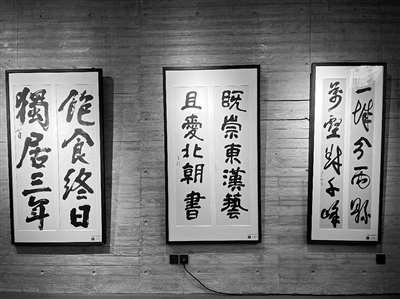 飽食終日
獨居三年
既崇東漢藝
且愛北朝書
一城分兩縣
萬壑對千峰